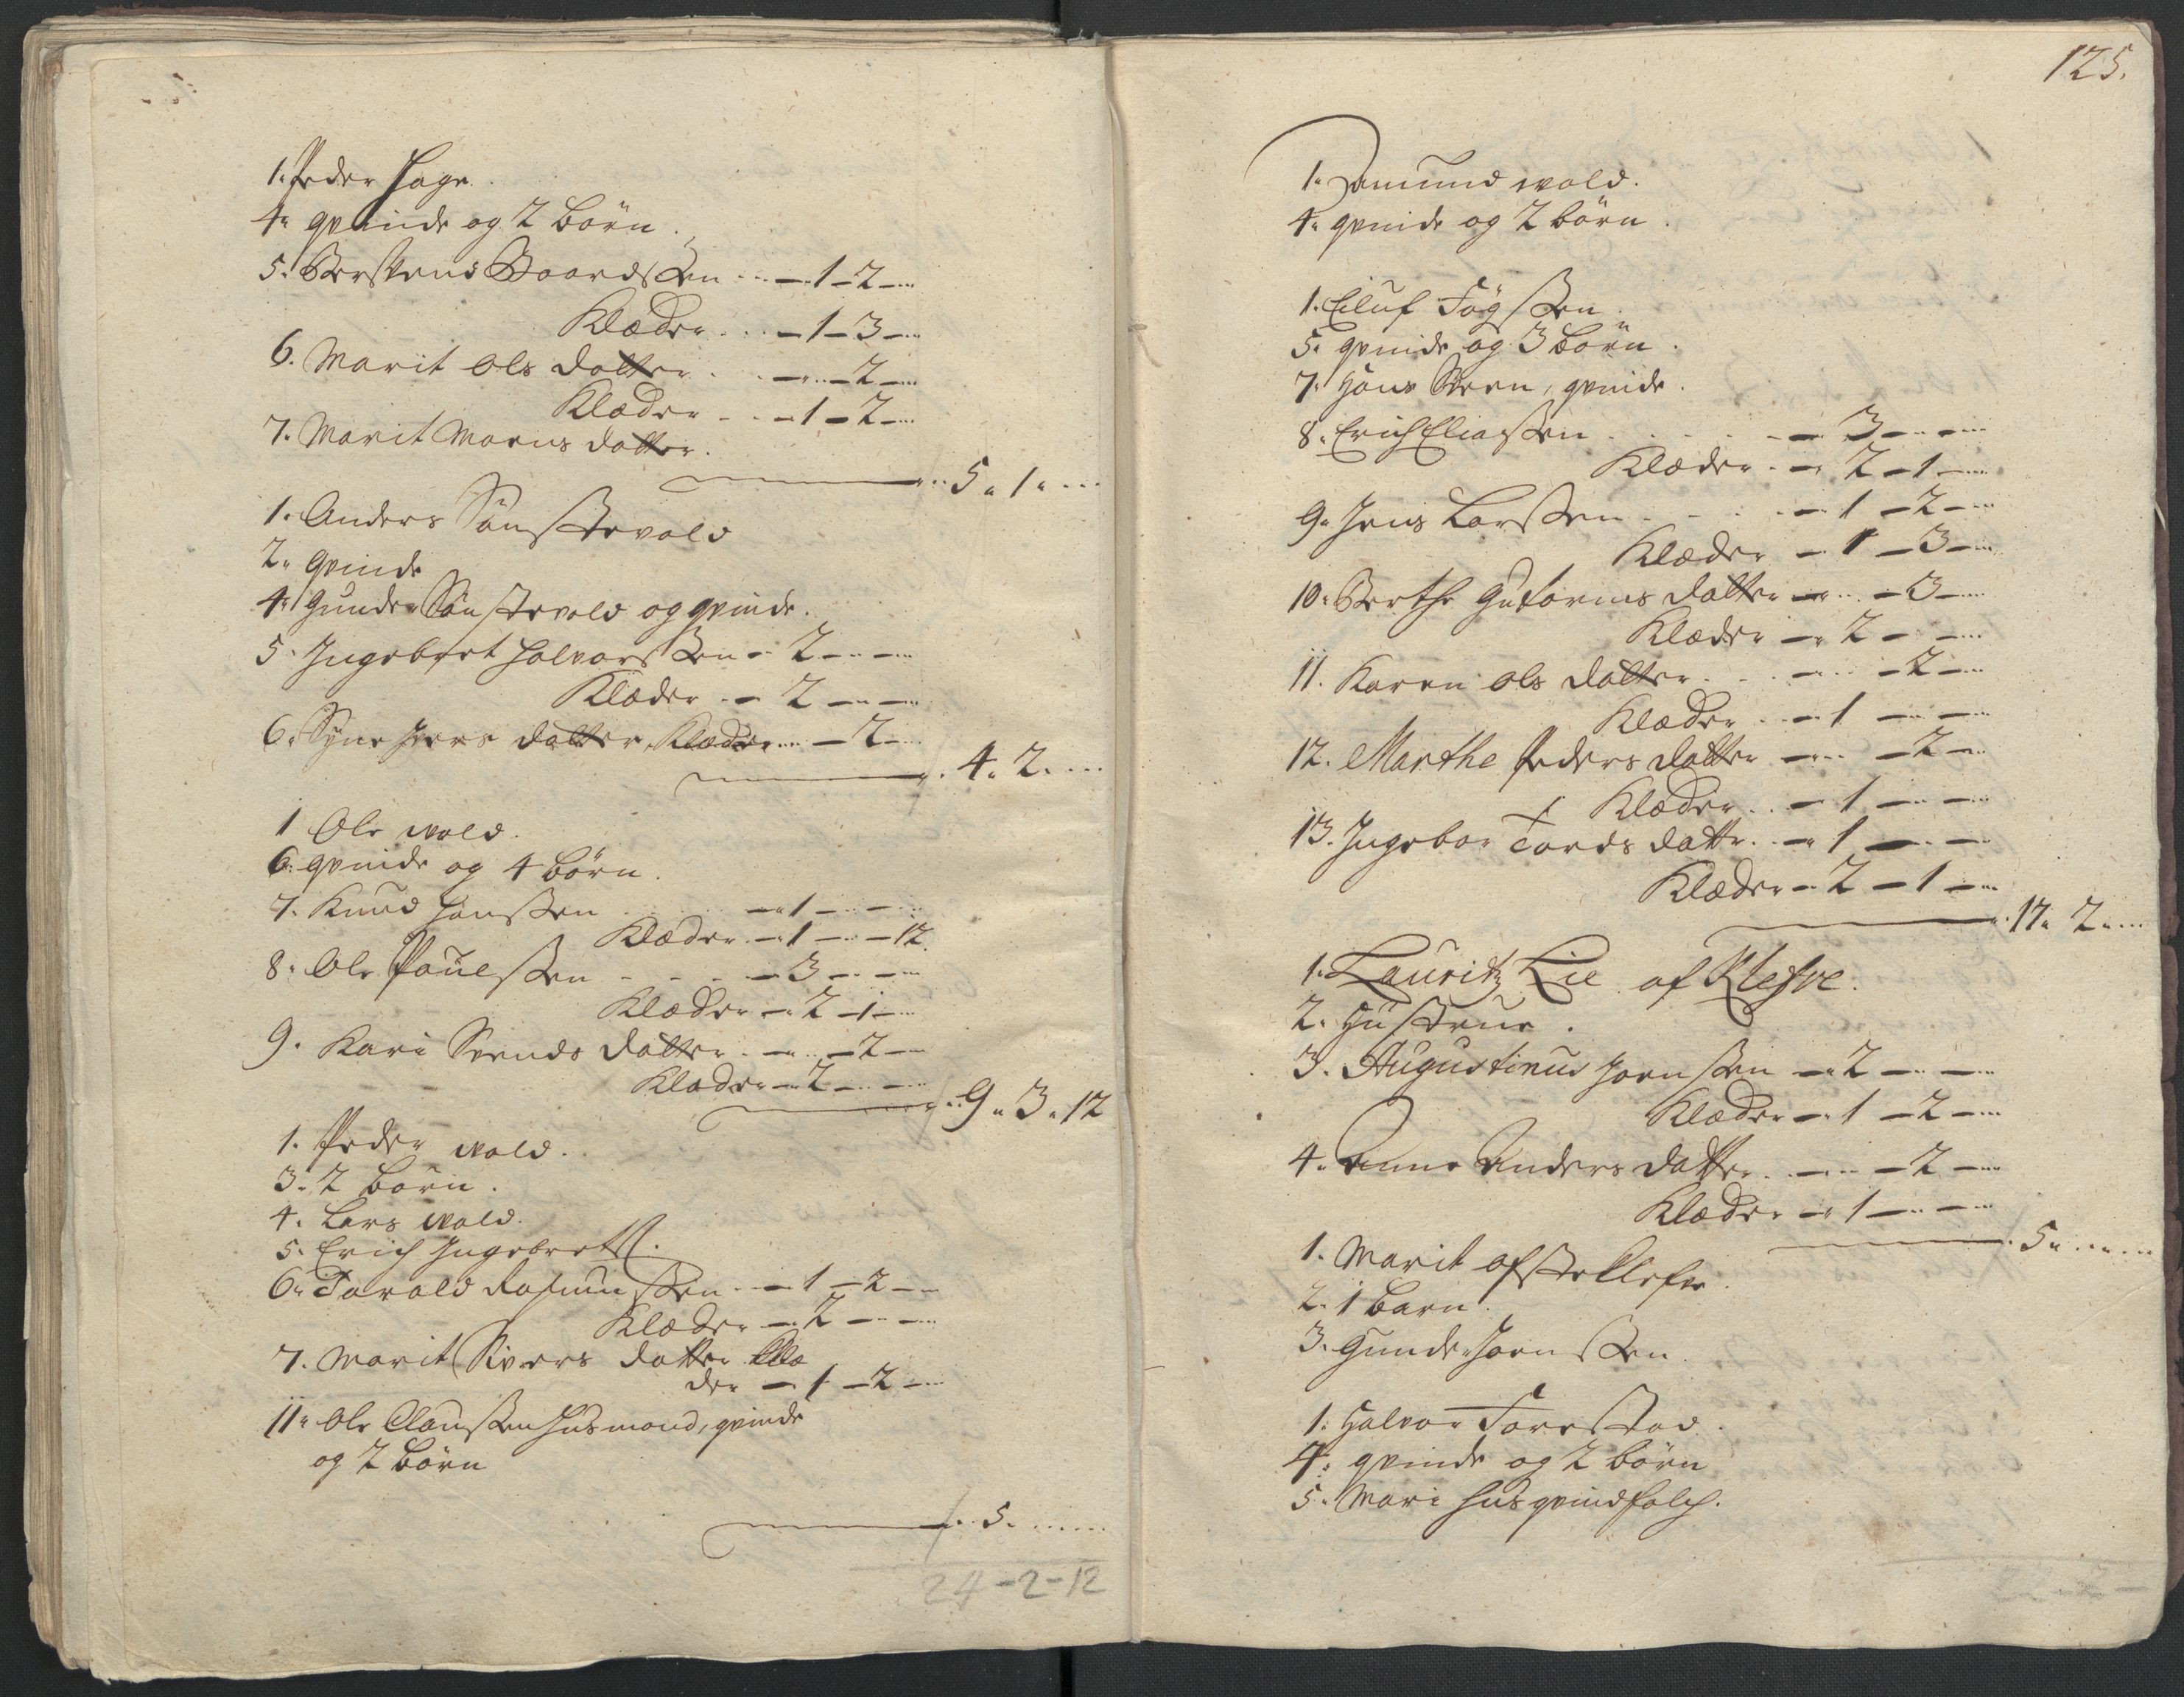 1. Peder Hage.
4. qvinde og 2 börn.
5. Berstvend Baardsen - 1 - 2 -
Klæder - 1 - 3 -
6. Marit Ols datter - 2 -
Klæder - 1 - 2 -
7. Marit Moens datter.
5. 1.
1. Anders Sönstevold
2. Qvinde
4. Gunder Sönstevold og qvinde.
5. Ingebret Halvorsen - 2 - -
Klæder - 2 - -
6. Syne datter, Klæder - 2 -
4. 2.
1 Ole wold.
6. qvinde og 4 börn.
7. Knud Hansen - 1 - -
Klæder - 1 - - 12.
8. Ole Poulsen - 3 - -
Klæder - 2 - 1 -
9. Kari Svends datter - - 2 -
Klæder - 2 - -
9. 3. 12
1. Peder wold.
3. 2 börn.
4. Lars wold.
5. Erich Ingebretss.
6. Tarald Rasmusen - 1 - 2 -
Klæder - 2 - -
7. Marit Sivers datter Klæ
der - 1 - 2 -
11. Ole Clausen Husmand, qvinde
og 2 börn
5.
24-2-12
125.
1. Amund wold.
4. qvinde og 2 börn.
1. Eiluf
5. qvinde og 3 börn.
7. Hans Steen, qvinde.
8. Erich Eliasen - 3 - -
Klæder - 2 - 1 -
9. Jens Larsen - 1 - 2 -
Klæder - 1 - 3 -
10. Berthe Gutorms datter - - 3 -
Klæder - 2 - -
11. Karen Ols datter - - 2 -
Klæder - 1 - -
12. Marthe Peders datter - - 2 -
Klæder - 1 - -
13. Ingebor Tords datt. - 1 - -
Klæder - 2 - 1 -
17. 2.
1. Lauritz Lie af Klefve.
2. Hustrue.
3. Augustinus Joensen - 2 - -
Klæder - 1 - 2 -
4. Anne Anders datter - - 2 -
Klæder - 1 - -
5.
1. Marit Klefve.
2. 1 Barn.
3. Gunder Joensen.
1. Halvor Torestad.
4. qvinde og 2 börn
5. Mari Husqvindfolch.
22-2-